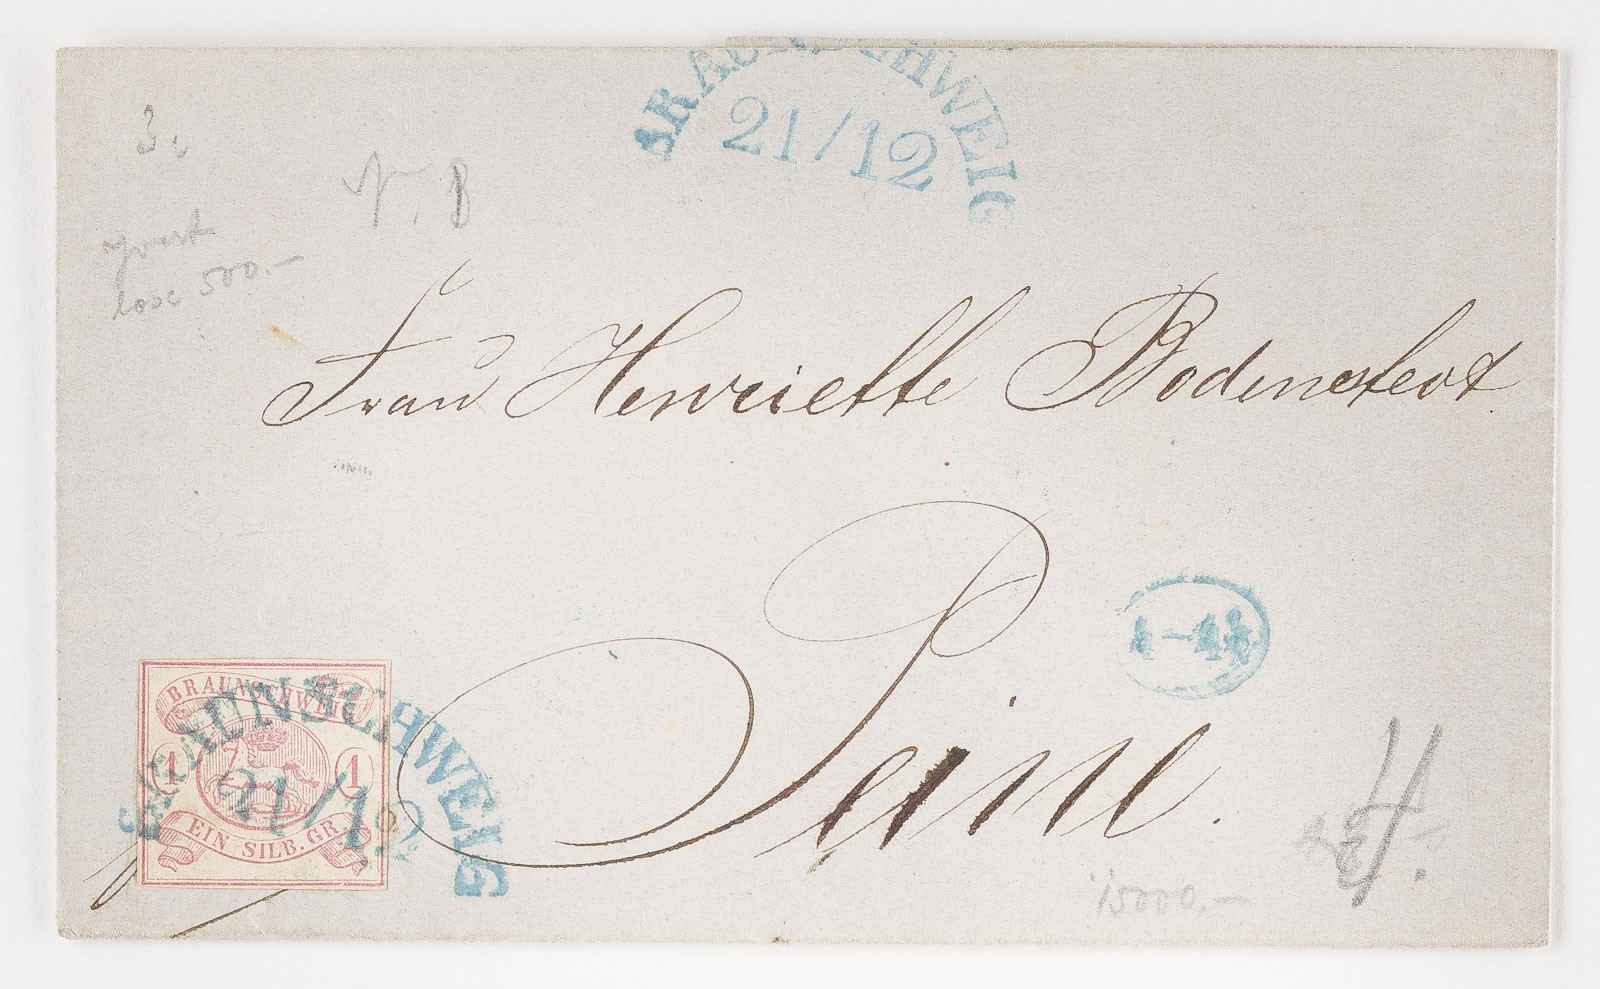 BRAUNSCHWEIG
21/12
3.
N. B
lose 500.-
Frau Henriette Bodenstedt
Peine.
4-4½
BRAUNSCHWEIG
1 1
EIN SILB. GR.
BRAUNSCHWEIG
21/12
15000.-